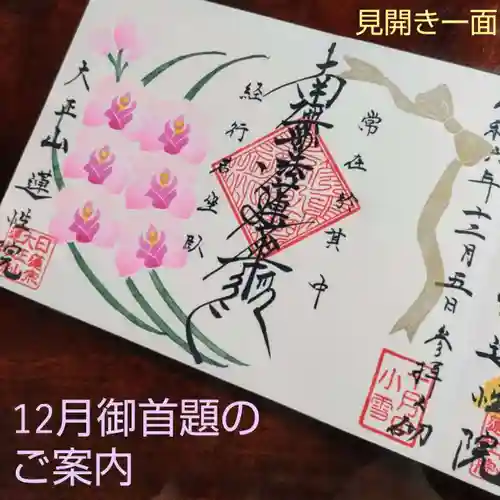 見開き一面
令和六年十二月五日参拝
小雪
院
常在於其中
南無妙法蓮華経
経行若坐臥
大正山
蓮
院
12月御首題の
ご案内